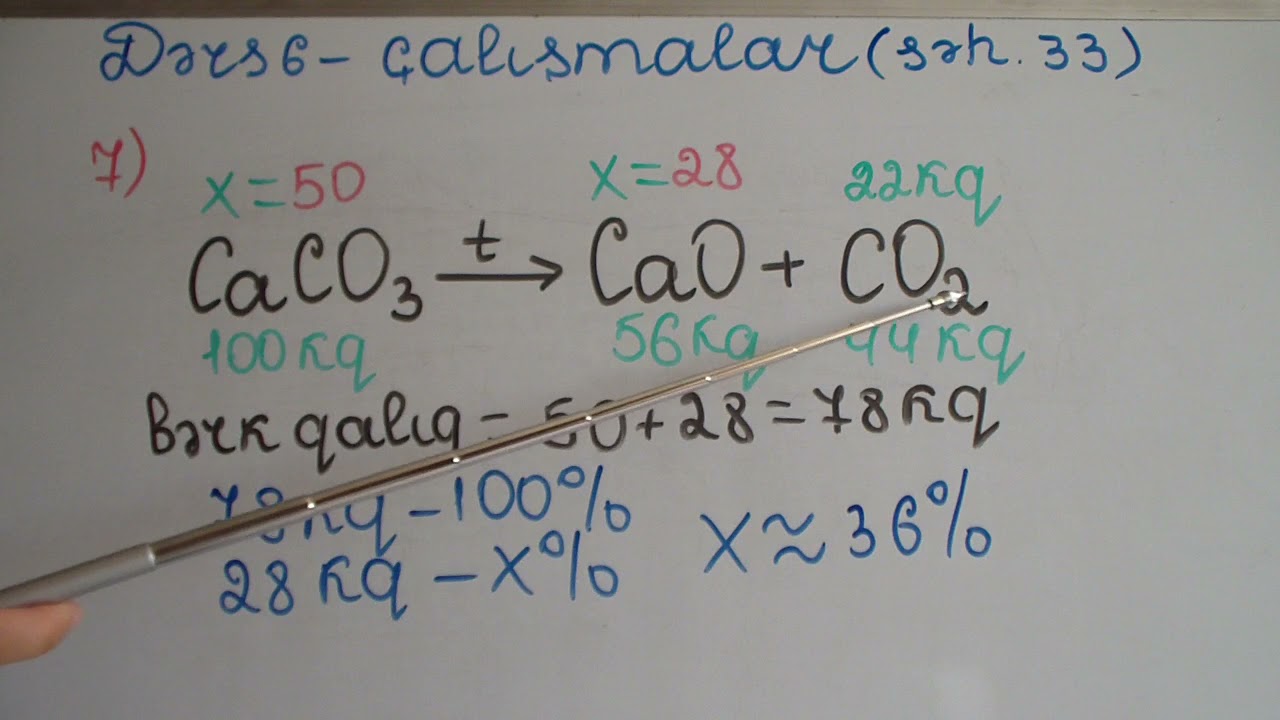 Dərs 6 - çalışmalar (səh. 33)
7)
x=50 x=28 22kq
CaCO₃ →t CaO + CO₂
100kq 56kq 44kq
Bərk qalıq - 50+28=78kq
78kq - 100%
28kq - x% x≈36%